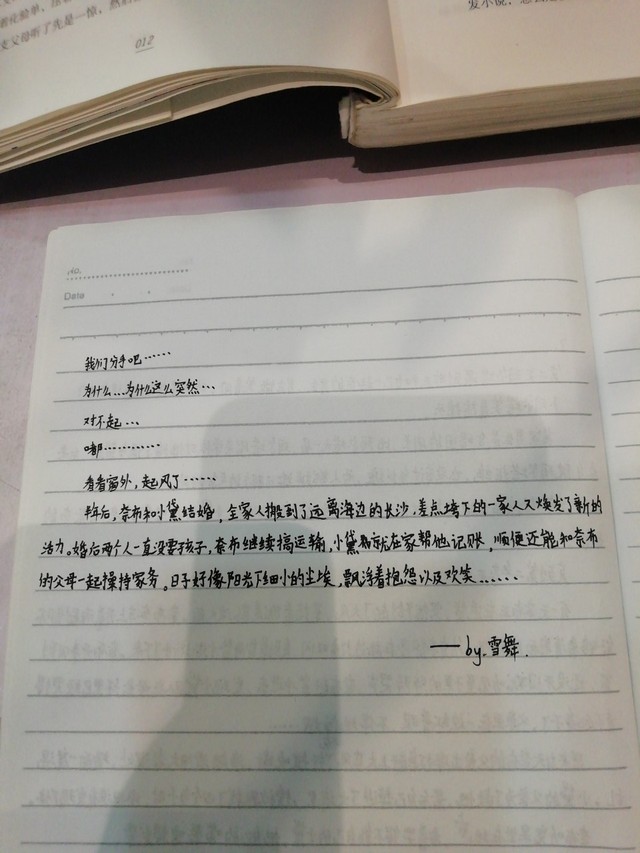 支父母听了先是一惊，然
012
No.
Date
我们分手吧……
为什么…为什么这么突然…
对不起…
嘟…………
看着窗外，起风了……
半年后，奈布和小黛结婚，全家人搬到了远离海边的长沙，差点垮下的一家人又焕发了新的
活力。婚后两个人一直没要孩子，奈布继续搞运输，小黛就在家帮他记账，顺便还能和奈布
的父母一起操持家务。日子好像阳光下细小的尘埃，飘浮着抱怨以及欢笑……
——by.雪舞.